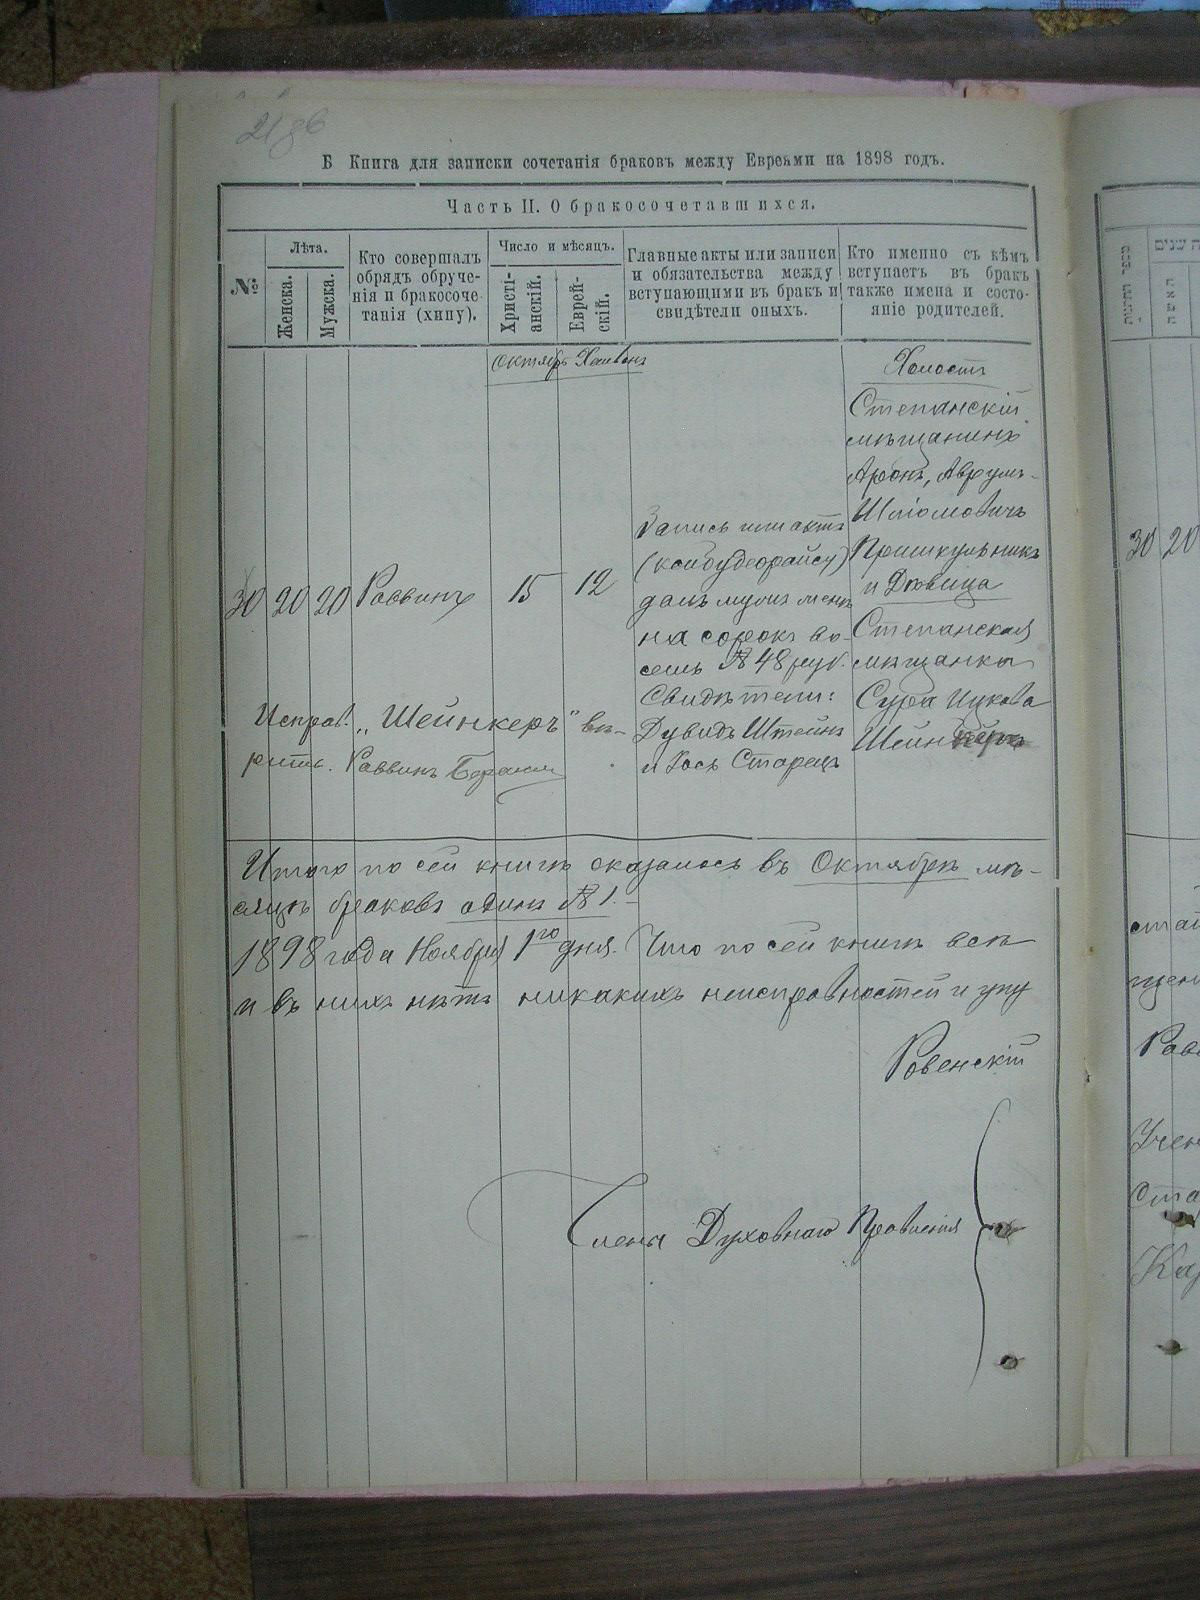 Б Книга для записки сочетанія браковъ между Евреями на 1898 годъ.
Часть II. О бракосочетавшихся.
№
Лѣта.
Женска.
Мужска.
Кто совершалъ
обрядъ обруче-
нія и бракосоче
танія (хипу).
Число и мѣсяцъ.
Христі-
анскій.
Еврей-
скій.
Главные акты или записи
и обязательства между
вступающими въ бракъ и
свидѣтели оныхъ.
Кто именно съ кѣмъ
вступаетъ въ бракъ
также имена и состо-
яніе родителей.
Октябрь Хешвонъ
30 20 20 Раввинъ 15 12
Запись или актъ
данъ мужъ женѣ
на сорокъ во-
семь № 48 руб.
Свидѣтели:
Дувидъ Штейнъ
и Іось Старецъ
Холостъ
Степанскій
мѣщанинъ
Аронъ, Аврумъ-
Шліомовичъ
Пришкульникъ
и Дѣвица
Степанская
мѣщанка
Сура Ицкова
Шейнкеръ
Исправ. „Шейнкеръ" вѣ-
рить. Раввинъ
Итого по сей книгѣ оказалось въ Октябрѣ мѣ-
сяцѣ браковъ одинъ № 1.-
1898 года Ноября 1го дня. Что по сей книгѣ всѣ
и въ нихъ нѣтъ никакихъ неисправностей и упу
Ровенскій
Члены Духовнаго Правленія
30 20